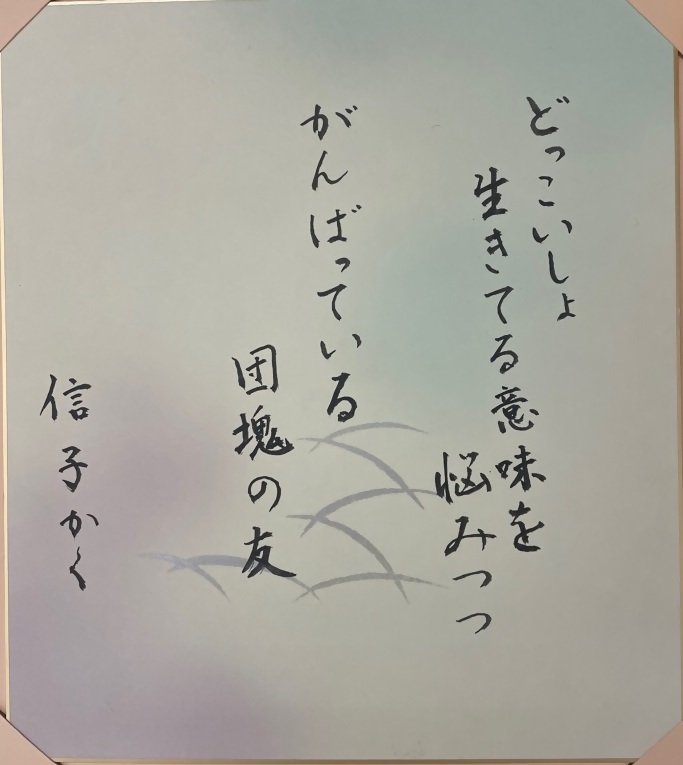 どっこいしょ
生きてる意味を
悩みつつ
がんばっている
団塊の友
信子かく